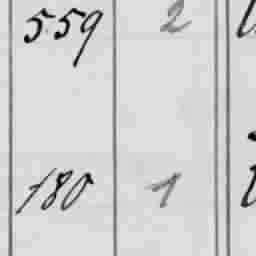 559 2
180 1